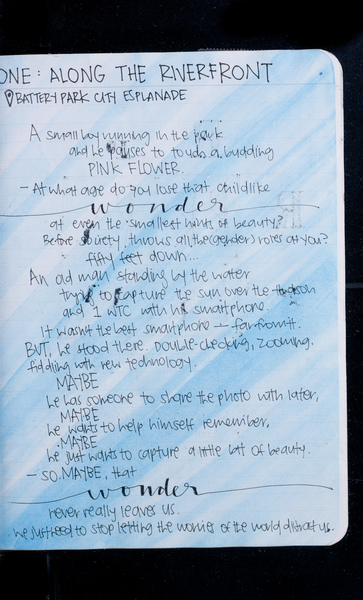 ONE: ALONG THE RIVERFRONT
BATTERY PARK CITY ESPLANADE
A small boy running in the park
and he pauses to touch a budding
PINK FLOWER.
- At what age do you lose that childlike
wonder
at even the smallest hints of beauty?
Before society throws all the (gender) roles at you?
fifty feet down...
An old man standing by the water
trying to capture the sun over the Hudson
and 1 WTC with his smartphone.
It wasn't the best smartphone — far from it.
BUT, he stood there. Double-checking, zooming.
fiddling with new technology.
MAYBE
he has someone to share the photo with later,
MAYBE
he wants to help himself remember,
MAYBE
he just wants to capture a little bit of beauty.
- SO MAYBE, that
wonder
never really leaves us.
we just need to stop letting the worries of the world distract us.